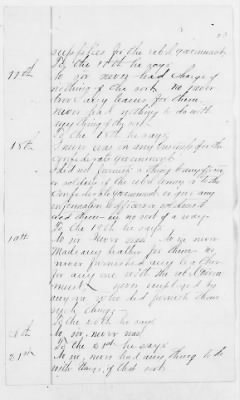 supplies for the rebel government
To the 17th he says
17th No sir never had charge of
nothing of the sort. no never
drove any teams for them.
never had nothing to do with
any thing of the sort.
To the 18th he says
18th I never was on any business for the
Confederate government
I did not furnish a thing to any officer
or soldier of the rebel army or to the
Confederate Government or give any
information to officers or soldiers
aid them in no sort of a way.
To the 19th he says
19th No sir Never was. No sir never
Made any leather for them. No
never furnished any leather
for any one with the rebel Govern
ment. never employed by
any one who did furnish them
such things
To the 20th he says
20th No sir, never was
To the 21st he says
21st No sir, never had any thing to do
with things of that sort